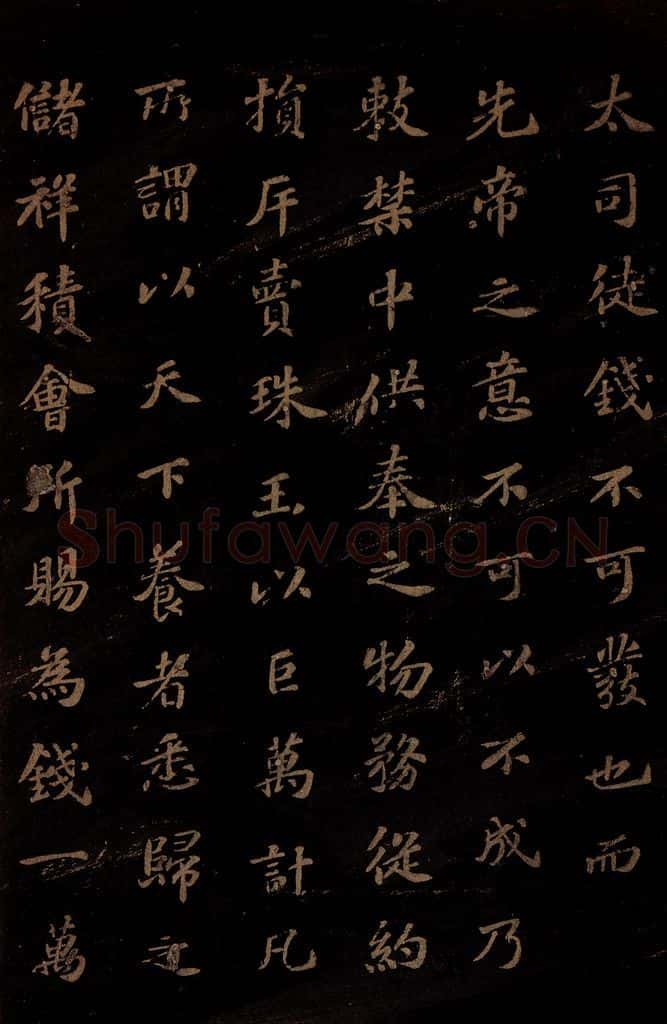 太司徒錢不可發也而
先帝之意不可以不成乃
敕禁中供奉之物務從約
損斥賣珠玉以巨萬計凡
所謂以天下養者悉歸之
儲祥積會所賜為錢一萬
Shufawang.CN